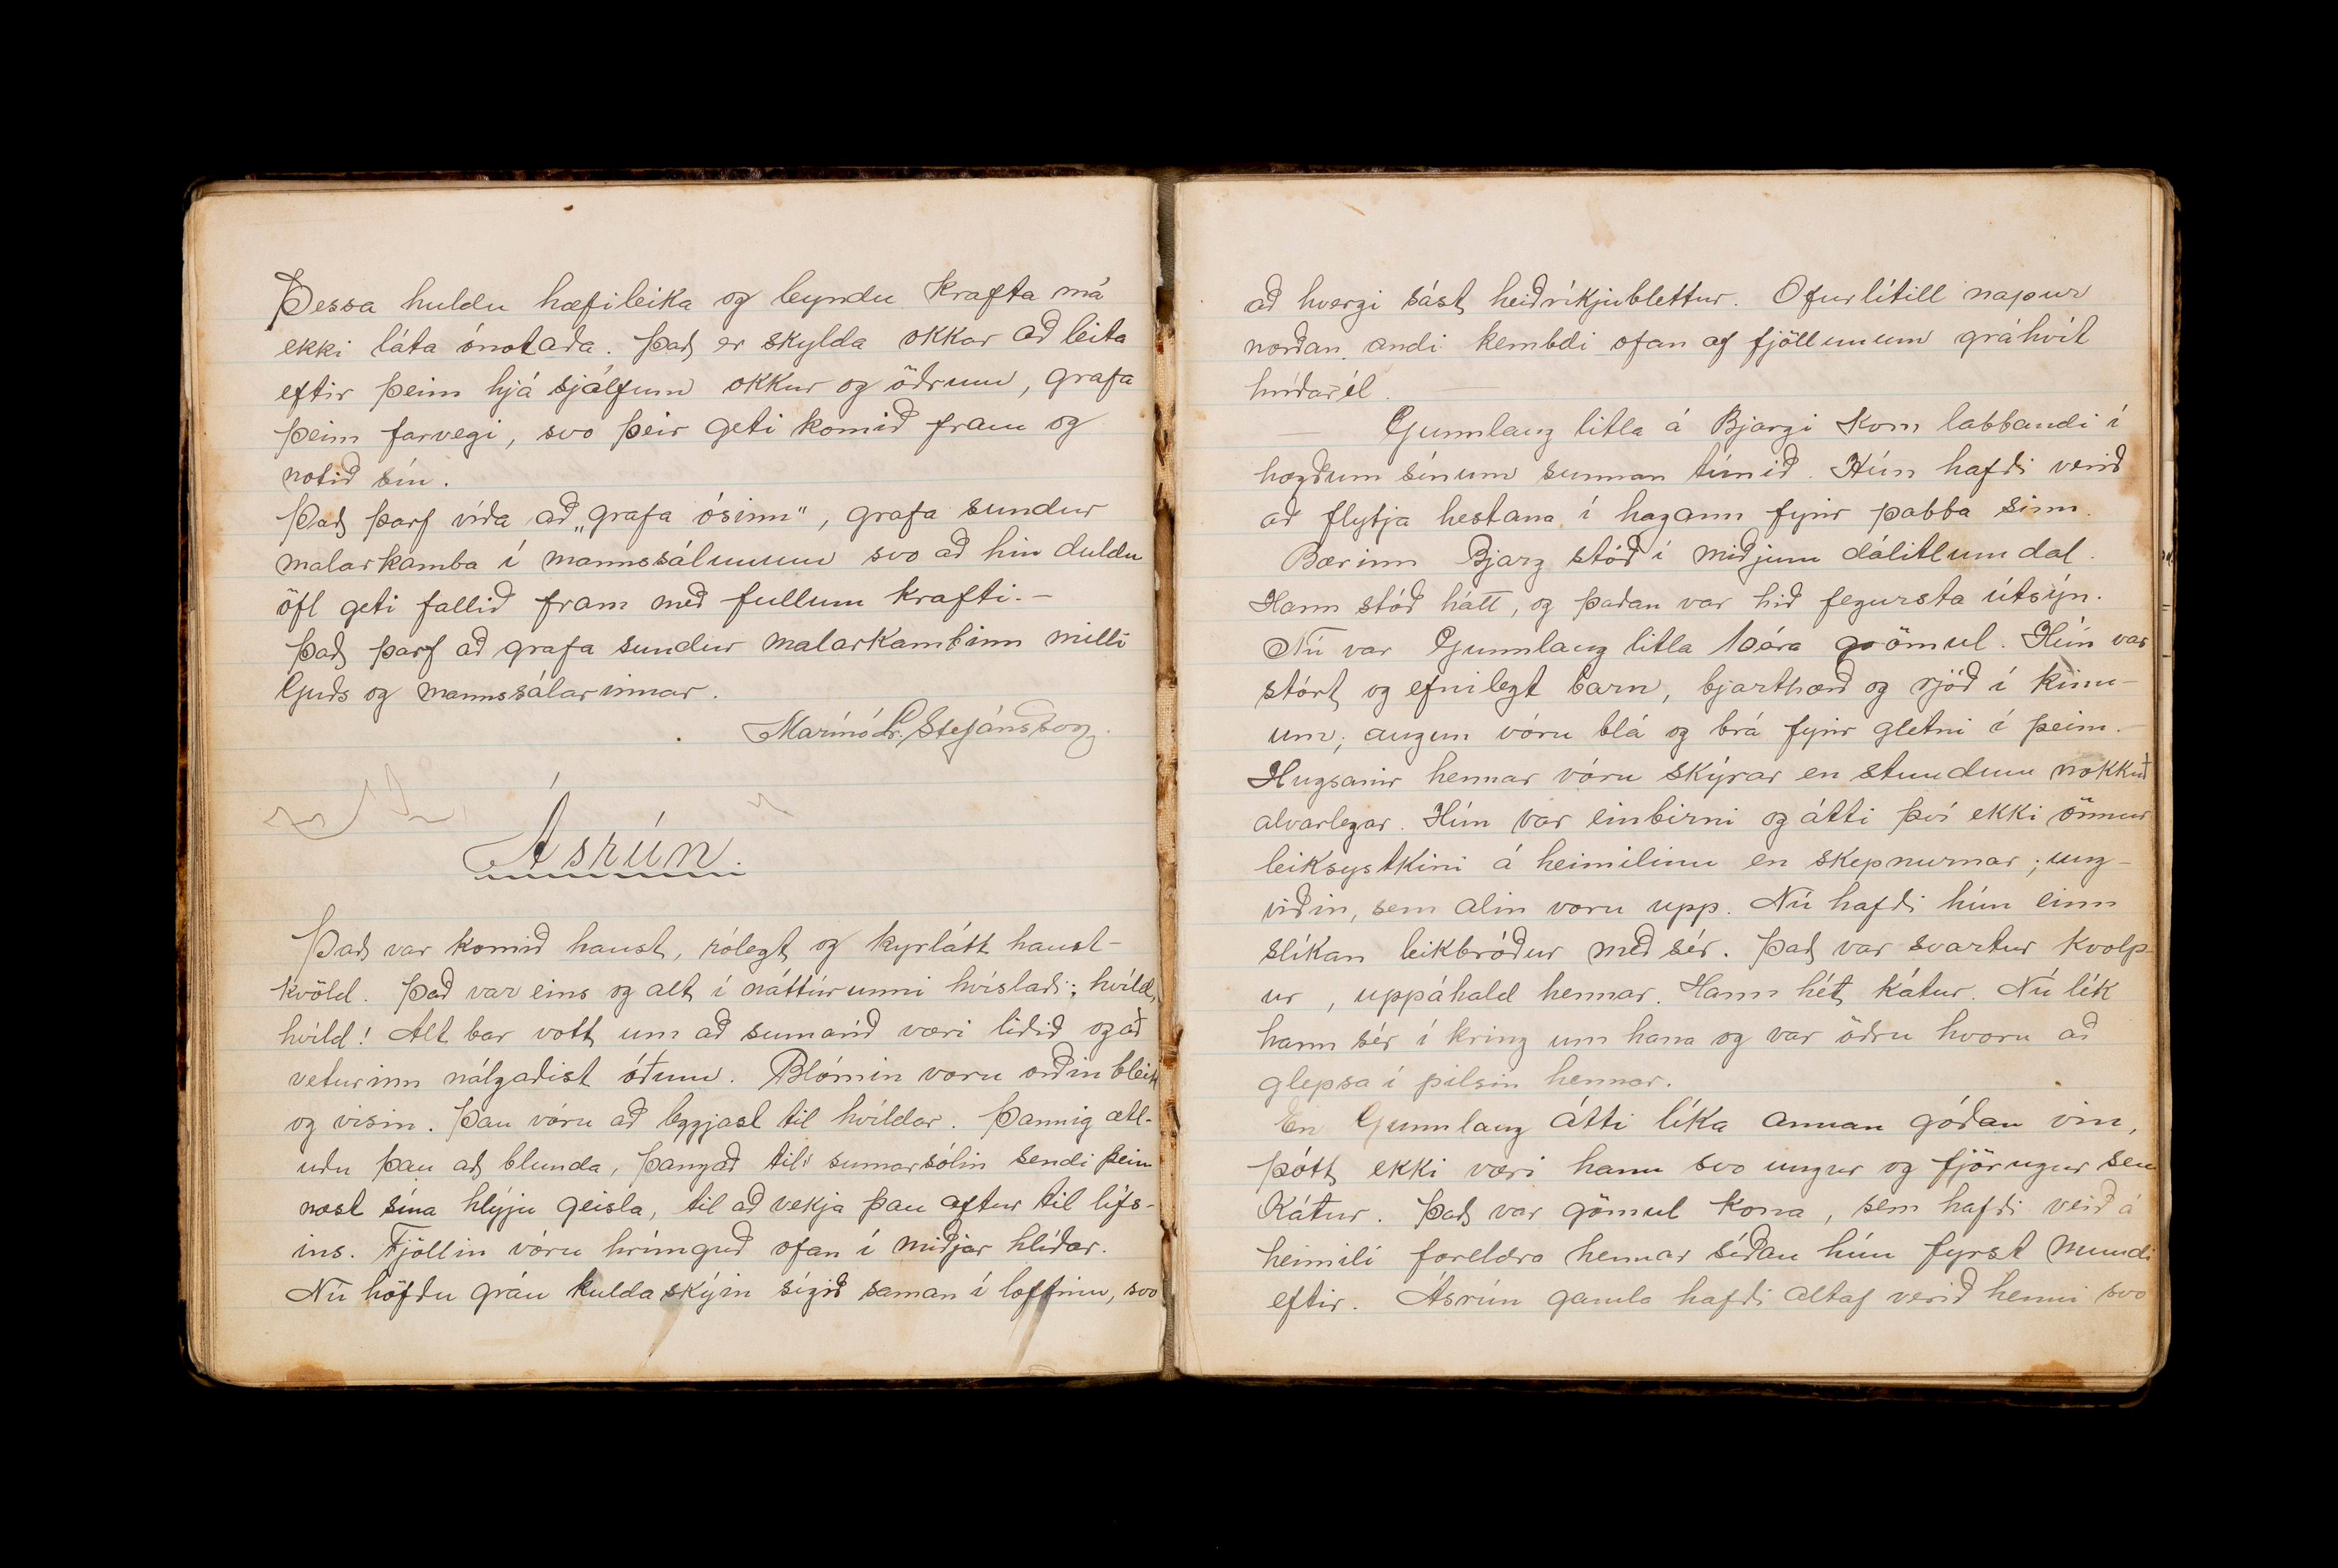 Þessa huldu hæfileika og leyndu krafta má
ekki láta ónotaða. Það er skylda okkar að leita
eftir þeim hjá sjálfum okkur og öðrum, grafa
þeim farvegi, svo þeir geti komið fram og
notið sín.
Það þarf víða að „grafa ósinn", grafa sundur
malarkamba í mannssálunum svo að hin duldu
öfl geti fallið fram með fullum krafti. —
Það þarf að grafa sundur malarkambinn milli
Guðs og mannssálarinnar.
Marinó L. Stefánsson.
Ásrún.
Það var komið haust, rólegt og kyrlátt haust-
kvöld. Það var eins og alt í náttúrunni hvíslaði: hvíld,
hvíld! Alt bar vott um að sumarið væri liðið og að
veturinn nálgaðist óðum. Blómin voru orðin bleik
og visin. Þau vóru að leggjast til hvíldar. Þannig ætl-
uðu þau að blunda, þangað til sumarsólin sendi þeim
næst sína hlýju geisla, til að vekja þau aftur til lífs-
ins. Fjöllin vóru hrímguð ofan í miðjar hlíðar.
Nú höfðu gráu kuldaskýin sígið saman í loftinu, svo
að hvergi sást heiðríkjublettur. Ofurlítill napur
norðan andi kembdi ofan af fjöllunum gráhvít
hríðarél.
Gunnlaug litla á Bjargi kom labbandi í
hægðum sínum sunnan túnið. Hún hafði verið
að flytja hestana í hagann fyrir pabba sinn.
Bærinn Bjarg stóð í miðjum dálitlum dal.
Hann stóð hátt, og þaðan var hið fegursta útsýn.
Nú var Gunnlaug litla 10 ára gömul. Hún var
stórt og efnilegt barn, bjarthærð og rjóð í kinn-
um; augun vóru blá og brá fyrir gletni í þeim. —
Hugsanir hennar vóru skýrar en stundum nokkuð
alvarlegar. Hún var einbirni og átti því ekki önnur
leiksystkini á heimilinu en skepnurnar; ung-
viðin, sem alin voru upp. Nú hafði hún einn
slíkan leikbróður með sér. Það var svartur hvolp-
ur, uppáhald hennar. Hann hét Kátur. Nú lék
hann sér í kring um hana og var öðru hvoru að
glepsa í pilsin hennar.
En Gunnlaug átti líka annan góðan vin,
þótt ekki væri hann svo ungur og fjörugur sem
Kátur. Það var gömul kona, sem hafði verið á
heimili foreldra hennar síðan hún fyrst mundi
eftir. Ásrún gamla hafði altaf verið henni svo